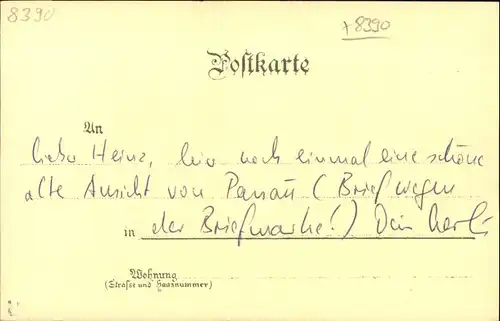 8390
+8390
Postkarte
An
Lieber Heinz, hier noch einmal eine schöne
alte Ansicht von Passau (Brief wegen
in der Briefmarke!) Dein
Wohnung
(Straße und Hausnummer)